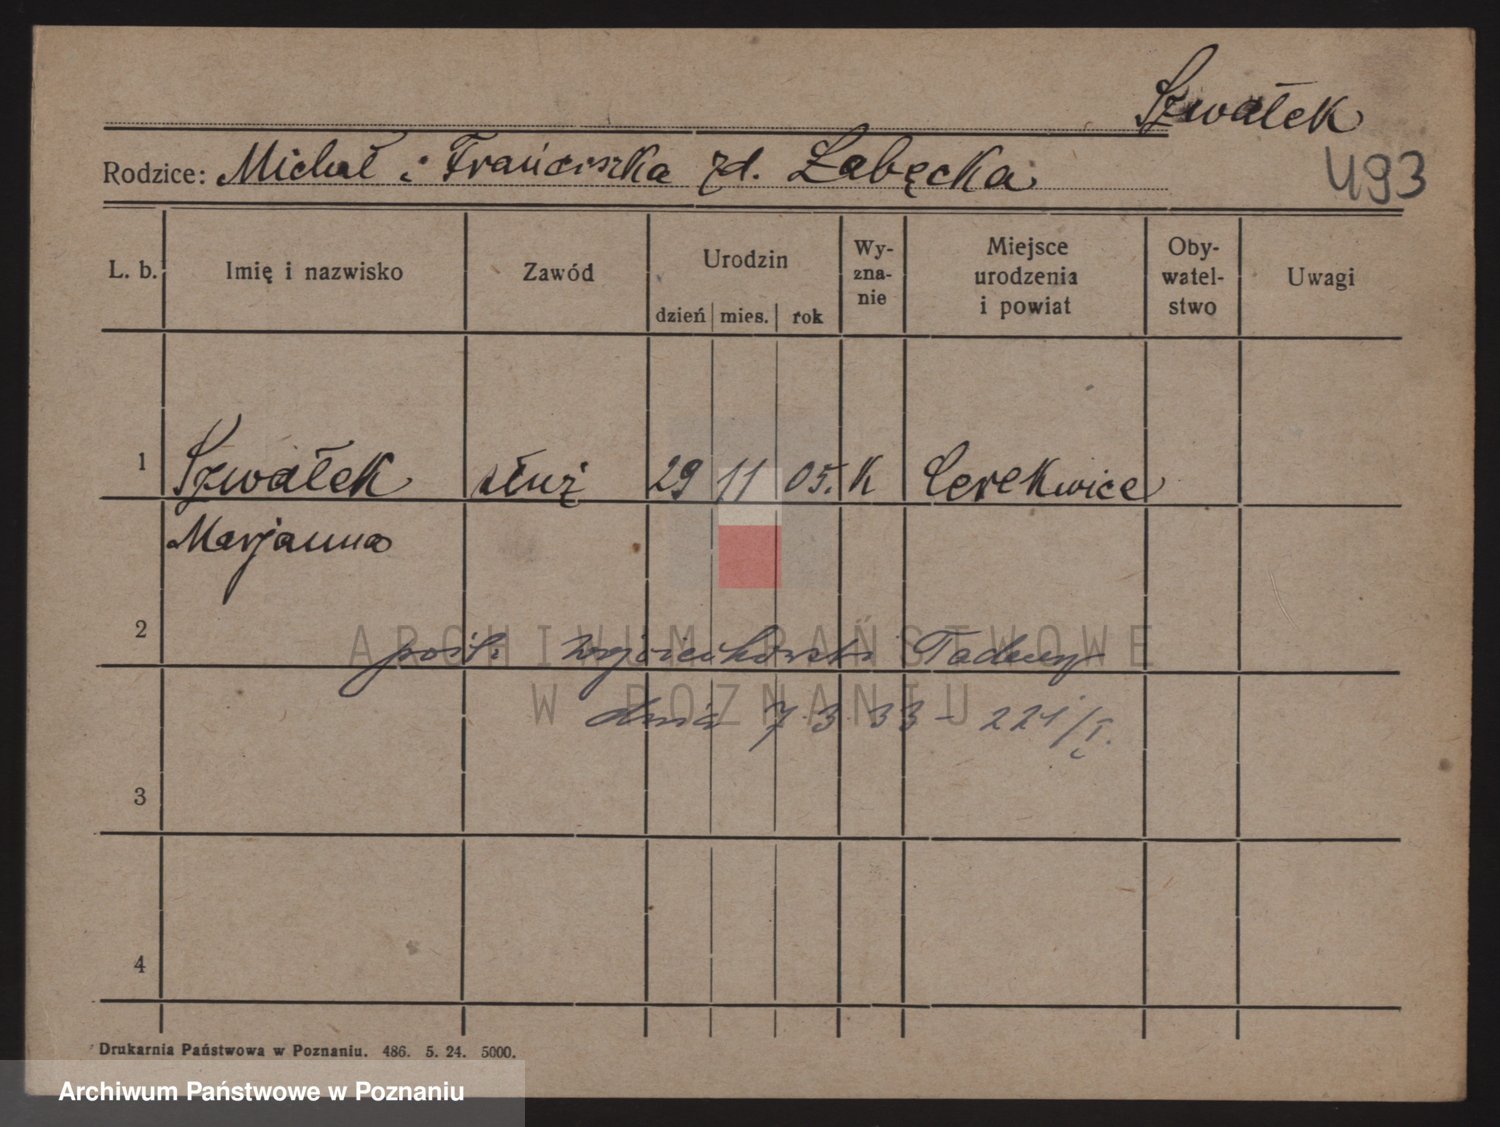 Szwałek
Rodzice: Michał i Franciszka zd. Łabęcka
493
L. b. Imię i nazwisko Zawód Urodzin dzień mies. rok Wy-zna-nie Miejsce urodzenia i powiat Oby-watel-stwo Uwagi
1 Szwałek służ 29 11 05. K Cerekwice
Marjanna
2
pośl. Wojciechowski Tadeusz
ARCHIWUM PAŃSTWOWE
W POZNANIU
dnia 7 3 33 - 221/I.
3
4
Drukarnia Państwowa w Poznaniu. 486. 5. 24. 5000.
Archiwum Państwowe w Poznaniu